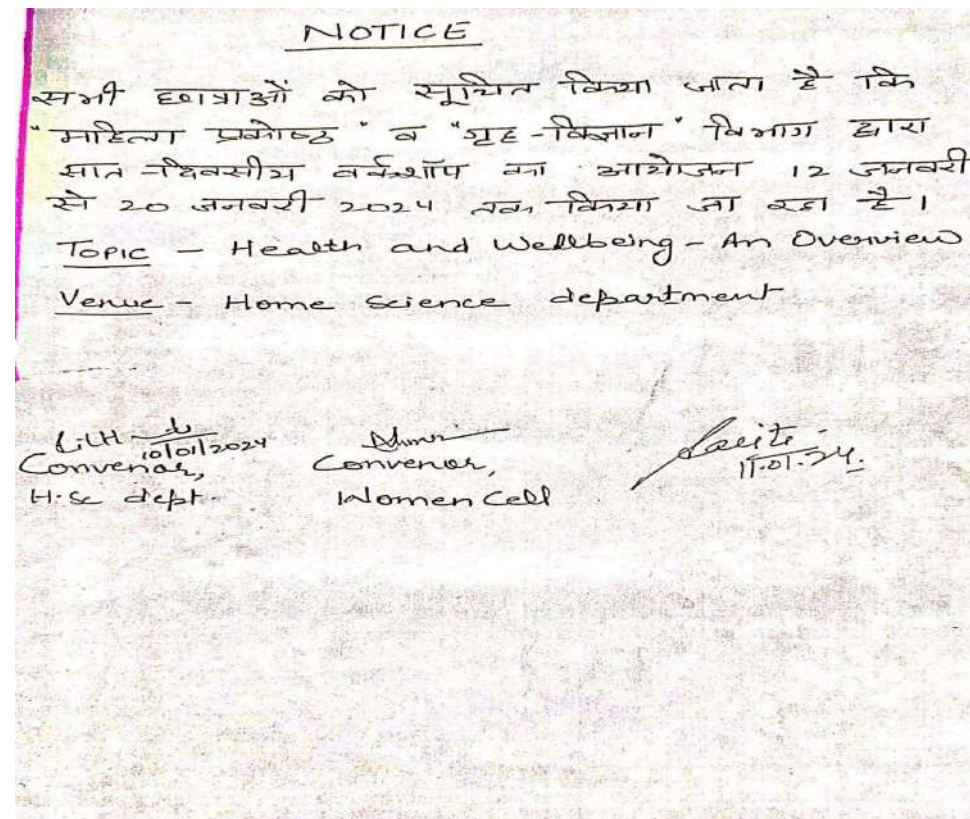 NOTICE
सभी छात्राओं को सूचित किया जाता है कि
"महिला प्रकोष्ठ" व "गृह-विज्ञान" विभाग द्वारा
सात-दिवसीय वर्कशॉप का आयोजन 12 जनवरी
से 20 जनवरी 2024 तक किया जा रहा है।
Topic - Health and Wellbeing - An Overview
Venue - Home Science department
10/01/2024
11.01.24.
Convenor, Convenor,
H.Sc dept. Women Cell